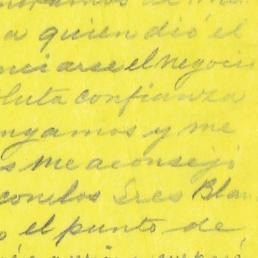 a quien dió el
nciarse el negoci
luta confianza
ngamos y me
s me aconsejó
con los Sres Blan
o el punto de